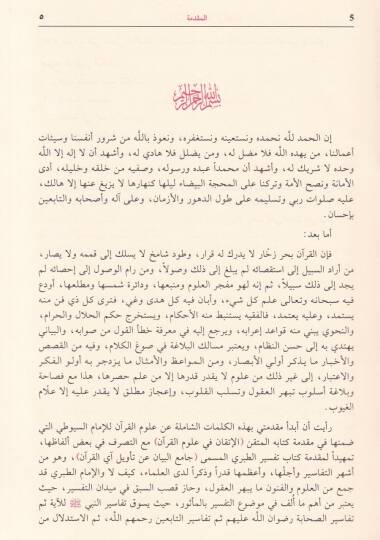 5 المقدمة ٥
بسم الله الرحمن الرحيم
إن الحمد لله نحمده ونستعينه ونستغفره، ونعوذ بالله من شرور أنفسنا وسيئات
أعمالنا، من يهده الله فلا مضل له، ومن يضلل فلا هادي له، وأشهد أن لا إله إلا الله
وحده لا شريك له، وأشهد أن محمداً عبده ورسوله، وصفيه من خلقه وخليله، أدى
الأمانة ونصح الأمة وتركنا على المحجة البيضاء ليلها كنهارها لا يزيغ عنها إلا هالك،
عليه صلوات ربي وتسليمه على طول الدهور والأزمان، وعلى آله وأصحابه والتابعين
بإحسان.
أما بعد:
فإن القرآن بحر زخّار لا يدرك له قرار، وطود شامخ لا يسلك إلى قممه ولا يصار،
من أراد السبيل إلى استقصائه لم يبلغ إلى ذلك وصولاً، ومن رام الوصول إلى إحصائه لم
يجد إلى ذلك سبيلاً، ثم إنه لهو مفجر العلوم ومنبعها، ودائرة شمسها ومطلعها، أودع
فيه سبحانه وتعالى علم كل شيء، وأبان فيه كل هدى وغي، فترى كل ذي فن منه
يستمد، وعليه يعتمد، فالفقيه يستنبط منه الأحكام، ويستخرج حكم الحلال والحرام،
والنحوي يبني منه قواعد إعرابه، ويرجع إليه في معرفة خطأ القول من صوابه، والبياني
يهتدي به إلى حسن النظام، ويعتبر مسالك البلاغة في صوغ الكلام، وفيه من القصص
والأخبار ما يذكر أولي الأبصار، ومن المواعظ والأمثال ما يزدجر به أولو الفكر
والاعتبار، إلى غير ذلك من علوم لا يقدر قدرها إلا من علم حصرها، هذا مع فصاحة
وبلاغة أسلوب تبهر العقول وتسلب القلوب، وإعجاز مطلق لا يقدر عليه إلا علّام
الغيوب.
رأيت أن أبدأ مقدمتي بهذه الكلمات الشاملة عن علوم القرآن للإمام السيوطي التي
ضمنها في مقدمة كتابه المتقن (الإتقان في علوم القرآن) مع التصرف في بعض ألفاظها،
تمهيداً لمقدمة كتاب تفسير الطبري المسمى (جامع البيان عن تأويل آي القرآن)، وهو من
أشهر التفاسير وأجلّها، وأعظمها قدراً وذكراً لدى العلماء، كيف لا والإمام الطبري قد
جمع من العلوم والفنون ما يبهر العقول، وحاز قصب السبق في ميدان التفسير، حيث
يعتبر من أهم ما ألف في موضوع التفسير بالمأثور، حيث يسوق تفاسير النبي ﷺ للآية ثم
تفاسير الصحابة رضوان الله عليهم ثم تفاسير التابعين رحمهم الله، ثم الاستدلال من